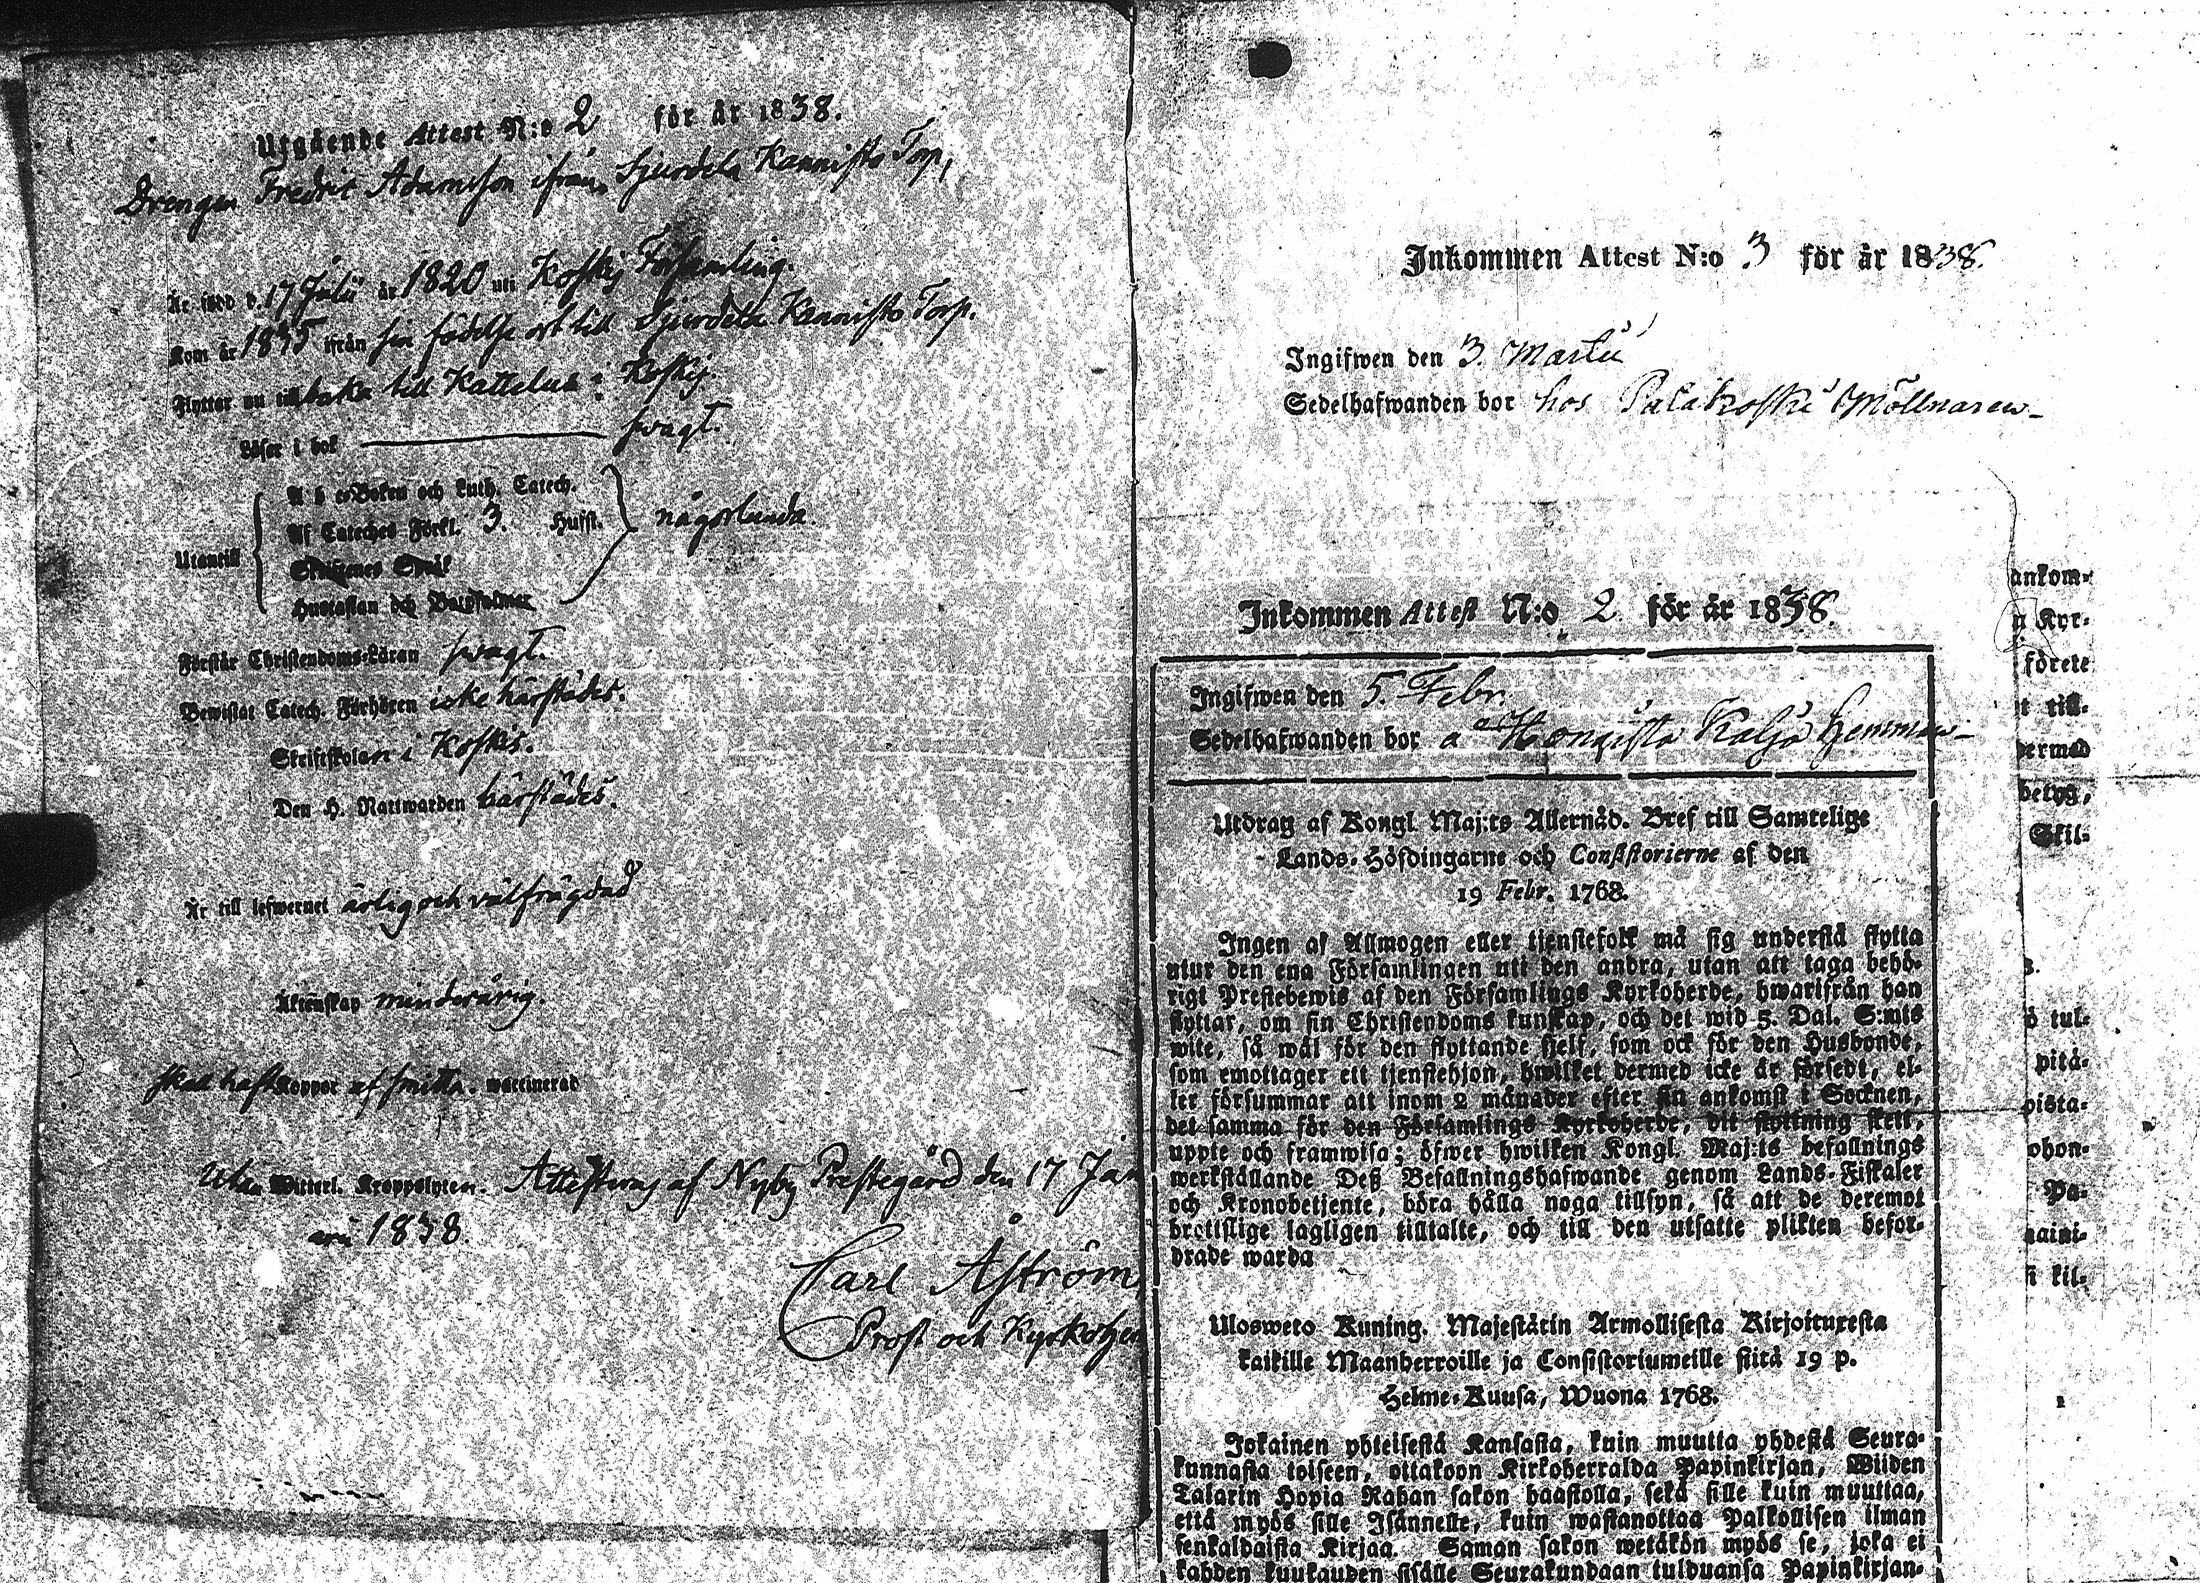 Utgående Attest N:o 2 för år 1838.
Drengen Fredric Adamsson ifrån Sjundela Kannisto Torp,
Är född d. 17 Julii år 1820 uti Koskis Församling.
Kom år 1835 ifrån sin födelse ort till Sjundela Kannisto Torp.
Flyttar nu tillbaka till Kattelus i Koskis.
Läser i bok swagt.
A b c-Boken och Luth. Catech.
Af Cateches Förkl. 3. Hufst.
Utantill någorlunda.
Skriftenes Språk
Hustaflan och Botpsalmer
Förstår Christendoms-Läran swagt.
Bewistat Catech. Förhören icke härstädes.
Skriftskolan i Koskis.
Den H. Nattwarden härstädes.
Är till lefwernet ärlig och välfrägdad
Äktenskap minderårig.
skall haft koppor af smitta. waccinerad
Utan Witterl. Kroppslyten. Attesteras af Nyby Prestegård den 17 Jan
arii 1838.
Carl Åström,
Prost och Kyrkoher
Inkommen Attest N:o 3 för år 1838.
Ingifwen den 3. Martii
Sedelhafwanden bor hos Palikoski Möllnaren
Inkommen Attest N:o 2 för år 1838.
Ingifwen den 5. Febr.
Sedelhafwanden bor å Hongisto Kalja Hemman
Utdrag af Kongl. Maj:ts Allernåd. Bref till Samtelige
Lands-Höfdingarne och Consistorierne af den
19 Febr. 1768.
Ingen af Allmogen eller tjenstefolk må sig understå flytta
utur den ena Församlingen uti den andra, utan att taga behö-
rigt Prestebewis af den Församlings Kyrkoherde, hwarifrån han
flyttar, om sin Christendoms kunskap, och det wid 5. Dal. S:mts
wite, så wäl för den flyttande sjelf, som ock för den Husbonde,
som emottager ett tjenstehjon, hwilket dermed icke är försedt, el-
ler försummar att inom 2 månader efter sin ankomst i Socknen,
det samma för den Församlings Kyrkoherde, dit flyttning skett,
uppte och framwisa; öfwer hwilken Kongl. Maj:ts befallnings
werkställande Deß Befallningshafwande genom Lands-Fiskaler
och Kronobetjente, böra hålla noga tillsyn, så att de deremot
brottslige lagligen tilltalte, och till den utsatte plikten befor-
drade warda
Ulosweto Kuning. Majestätin Armollisesta Kirjoituxesta
kaikille Maanherroille ja Consistoriumeille siitä 19 p.
Helme-Kuusa, Wuona 1768.
Jokainen yhteisestä Kansasta, kuin muutta yhdestä Seura-
kunnasta toiseen, ottakoon Kirkoherralda Papinkirjan, Wiiden
Talarin Hopia Rahan sakon haastolla, sekä sille kuin muuttaa,
että myös sille Isännelle, kuin wastanottaa Palkollisen ilman
senkaldaista Kirjaa. Saman sakon wetäkön myös se, joka ei
kahden kuukauden sisälle Seurakundaan tulduansa Papinkirjan-
ankom-
Kyr-
förete
t till-
dermed
betyg,
Skil-
tul-
pitä-
pista-
ohon-
Pa-
kil-